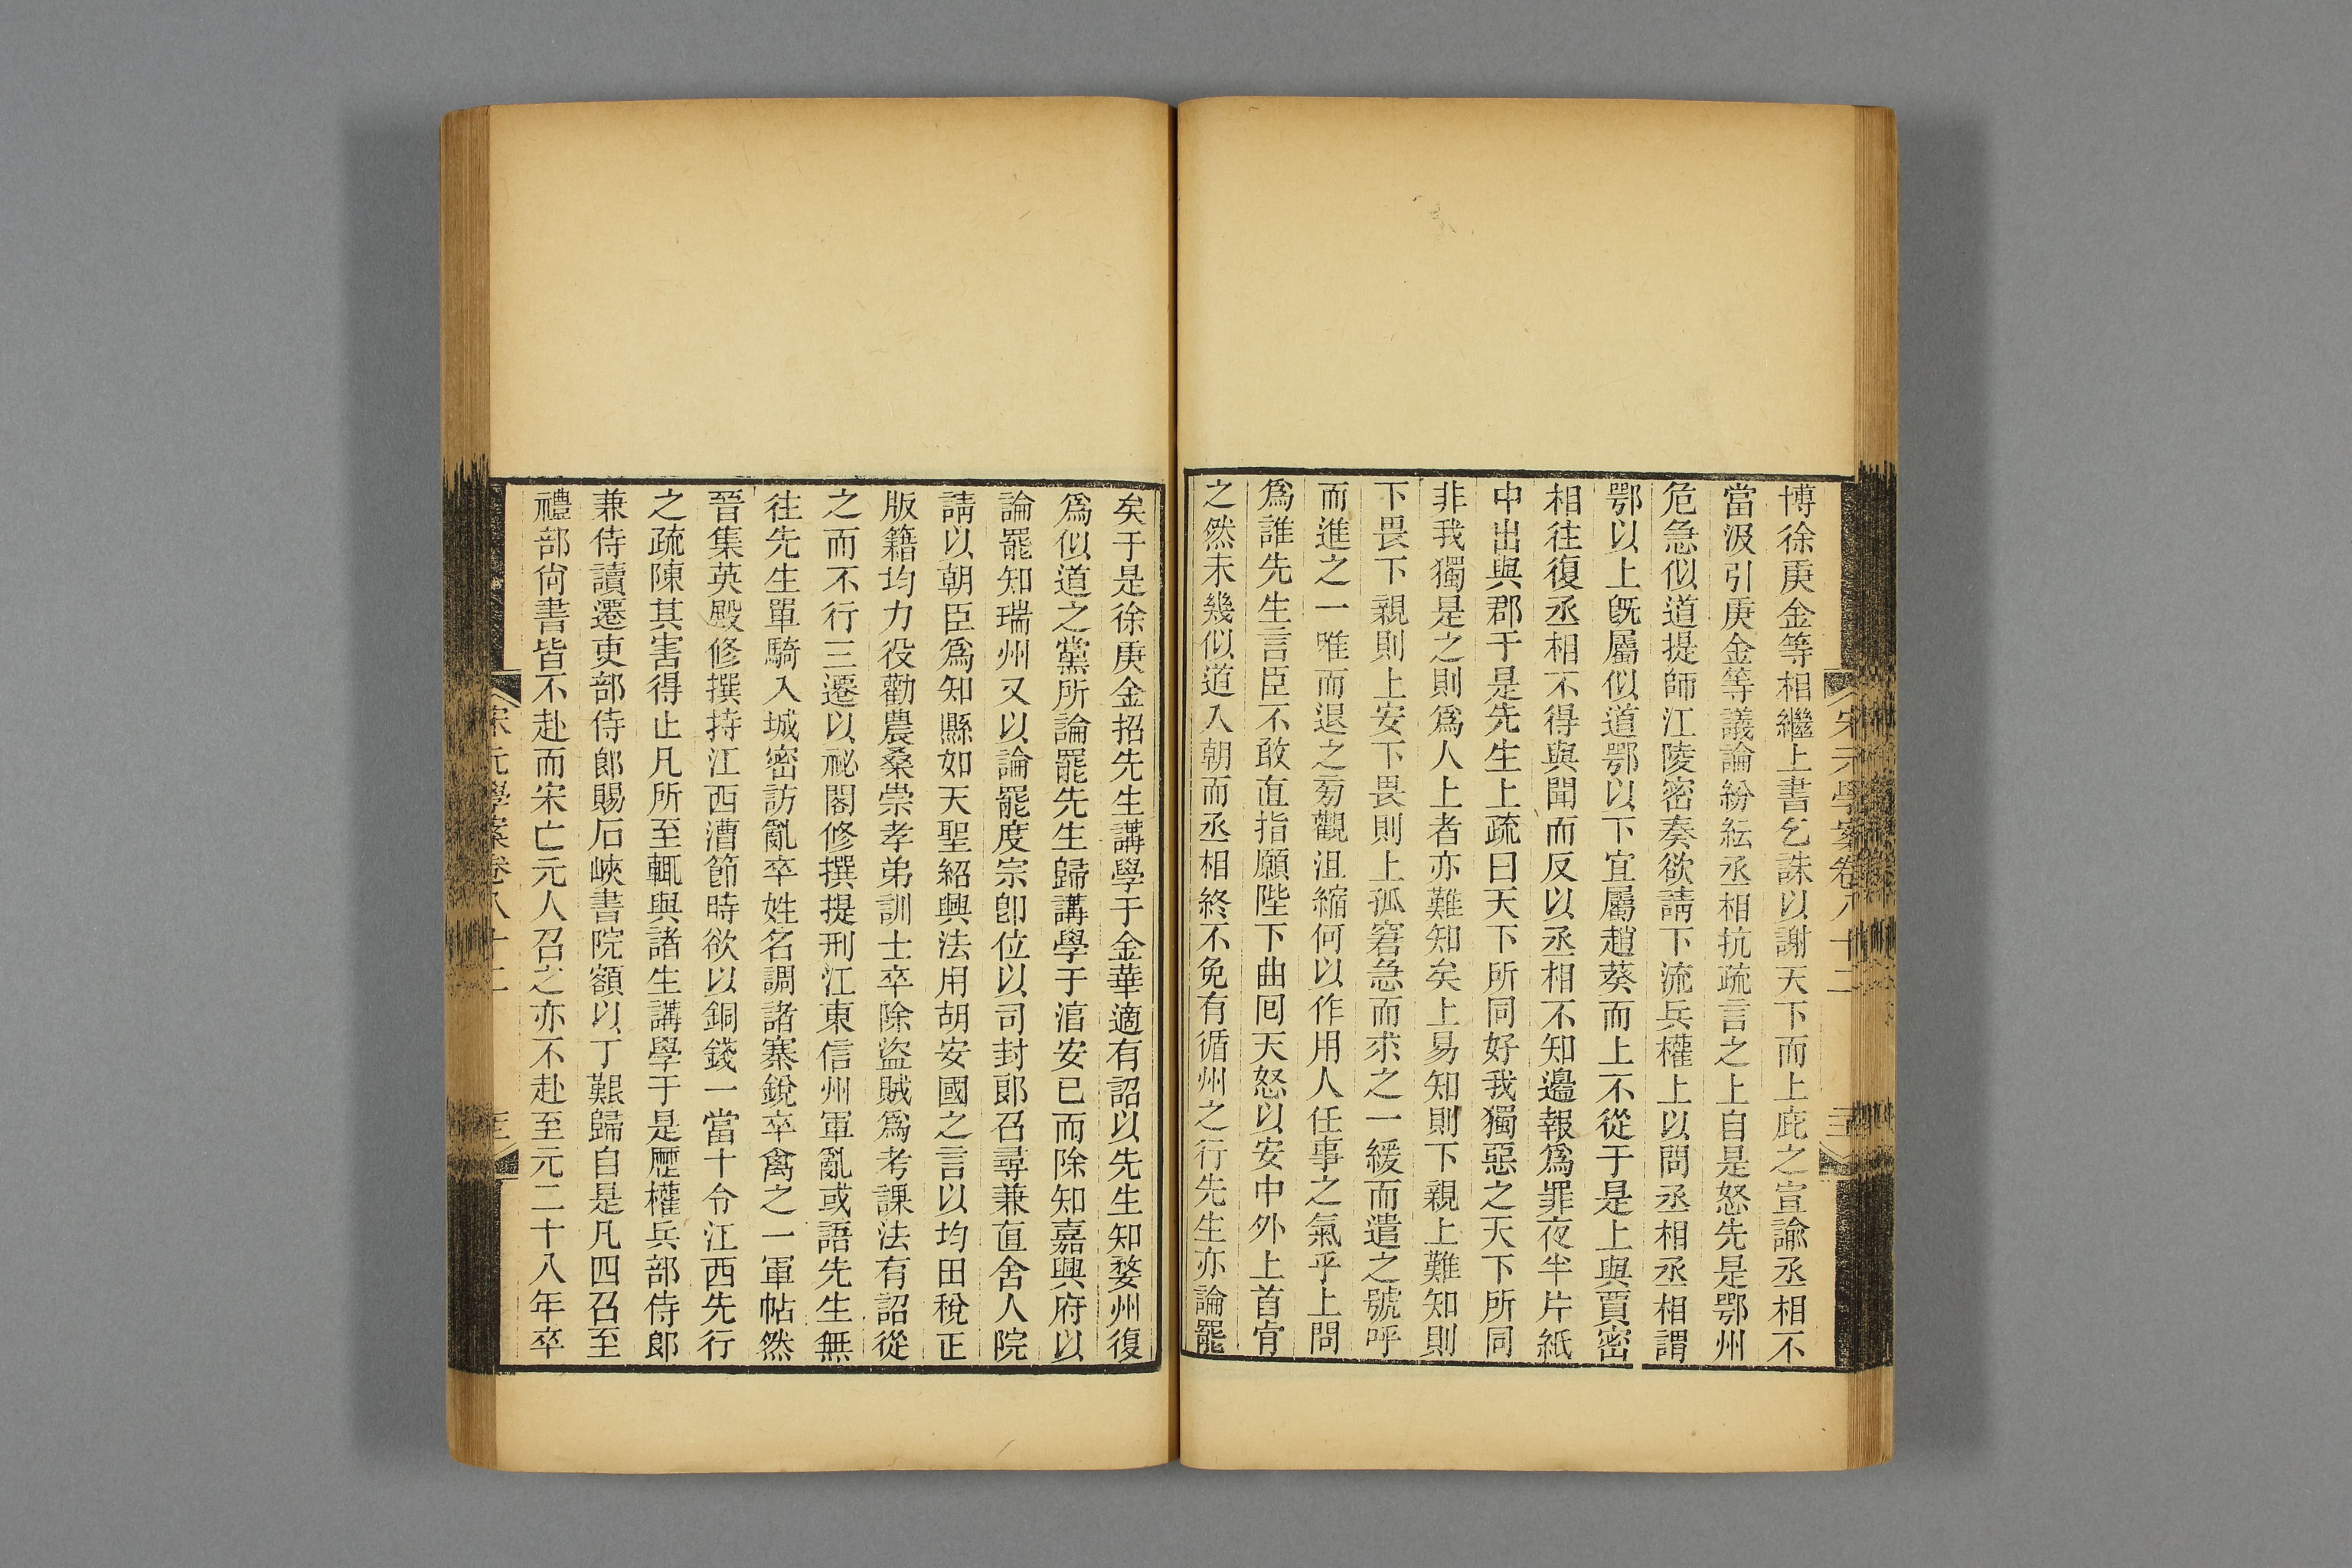 宋元學案卷八十二
博徐庚金等相繼上書乞誅以謝天下而上庇之宣諭丞相不
當汲引庚金等議論紛紜丞相抗疏言之上自是怒先是鄂州
危急似道提師江陵密奏欲請下流兵權上以問丞相丞相謂
鄂以上旣屬似道鄂以下宜屬趙葵而上不從于是上與賈密
相往復丞相不得與聞而反以丞相不知邊報爲罪夜半片紙
中出與郡于是先生上疏曰天下所同好我獨惡之天下所同
非我獨是之則爲人上者亦難知矣上易知則下親上難知則
下畏下親則上安下畏則上孤窘急而求之一緩而遣之號呼
而進之一唯而退之菊觀沮縮何以作用人任事之氣乎上問
爲誰先生言臣不敢直指願陛下曲囘天怒以安中外上首肎
之然未幾似道入朝而丞相終不免有循州之行先生亦論罷
矣于是徐庚金招先生講學于金華適有詔以先生知婺州復
爲似道之黨所論罷先生歸講學于涫安已而除知嘉興府以
論罷知瑞州又以論罷度宗卽位以司封郎召尋兼直舍人院
請以朝臣爲知縣如天聖紹興法用胡安國之言以均田稅正
版籍均力役勸農桑崇孝弟訓士卒除盜賊爲考課法有詔從
之而不行三遷以祕閣修撰提刑江東信州軍亂或語先生無
往先生單騎入城密訪亂卒姓名調諸寨銳卒禽之一軍帖然
晉集英殿修撰持江西漕節時欲以銅錢一當十令江西先行
之疏陳其害得止凡所至輒與諸生講學于是歷權兵部侍郎
兼侍讀遷吏部侍郎賜石峽書院額以丁艱歸自是凡四召至
禮部尙書皆不赴而宋亡元人召之亦不赴至元二十八年卒
宋元學案卷八十二